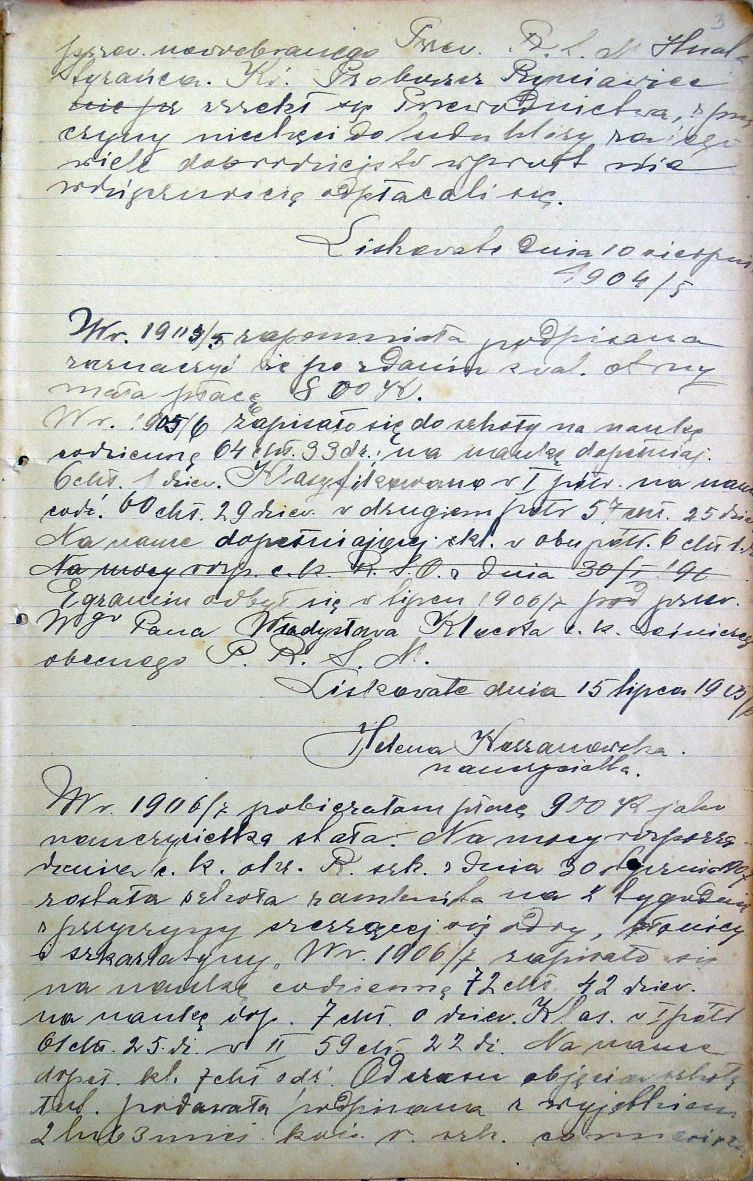 3
przew. nowoobranego Przew. R. S. M.
Styrańca. Ks. Proboszcz
zrzekł się Przewodnictwa, z przy
czyny niechęci do ludu który za jego
wiele dobrodziejstw wprost nie
wdzięcznością odpłacali się.
Liskowate dnia 10 sierpnia
1904/5
W r. 1903/5 zapomniała podpisana
zaznaczyć że po zdaniu kwal. otrzy
mała płacę 800 K.
W r. 1905/6 zapisało się do szkoły na naukę
codzienną 64 chł. 33 dz., na naukę dopełniaj.
6 chł. 1 dziew. Klasyfikowano w I półr. na nau
codz. 60 chł. 29 dziew. w drugiem półr 57 chł. 25 dziew
Na nauce dopełniającej kl. w obu półr. 6 chł 1
Na mocy rozp. c. k. R. S. O. z dnia 30/ 190
Egzamin odbył się w lipcu 1906/7 pod przew.
Wgo Pana Władysława c. k. leśniczego
obecnego P. R. S. M.
Liskowate dnia 15 lipca 190
Helena Kaszanowska
nauczycielka.
W r. 1906/7 pobierałam płacę 900 K jako
nauczycielka stała. Na mocy rozporzą
dzenia c. k. okr. R. szk. z dnia 30 stycznia 907
została szkoła zamknięta na 2 tygodnie
z przyczyny szerzącej się odry, płonicy
i szkarlatyny. W r. 1906/7 zapisało się
na naukę codzienną 72 chł. 42 dziew.
na naukę dop. 7 chł. 0 dziew. Klas. w I półr
61 chł. 25 dz. w II 59 chł 22 dz. Na nauce
dopeł. kl. 7 chł 0 dz. Od czasu objęcia szkoły
tut. podawała podpisana z wyjątkiem
2 lub 3 mies. w. szk. co miesiąc